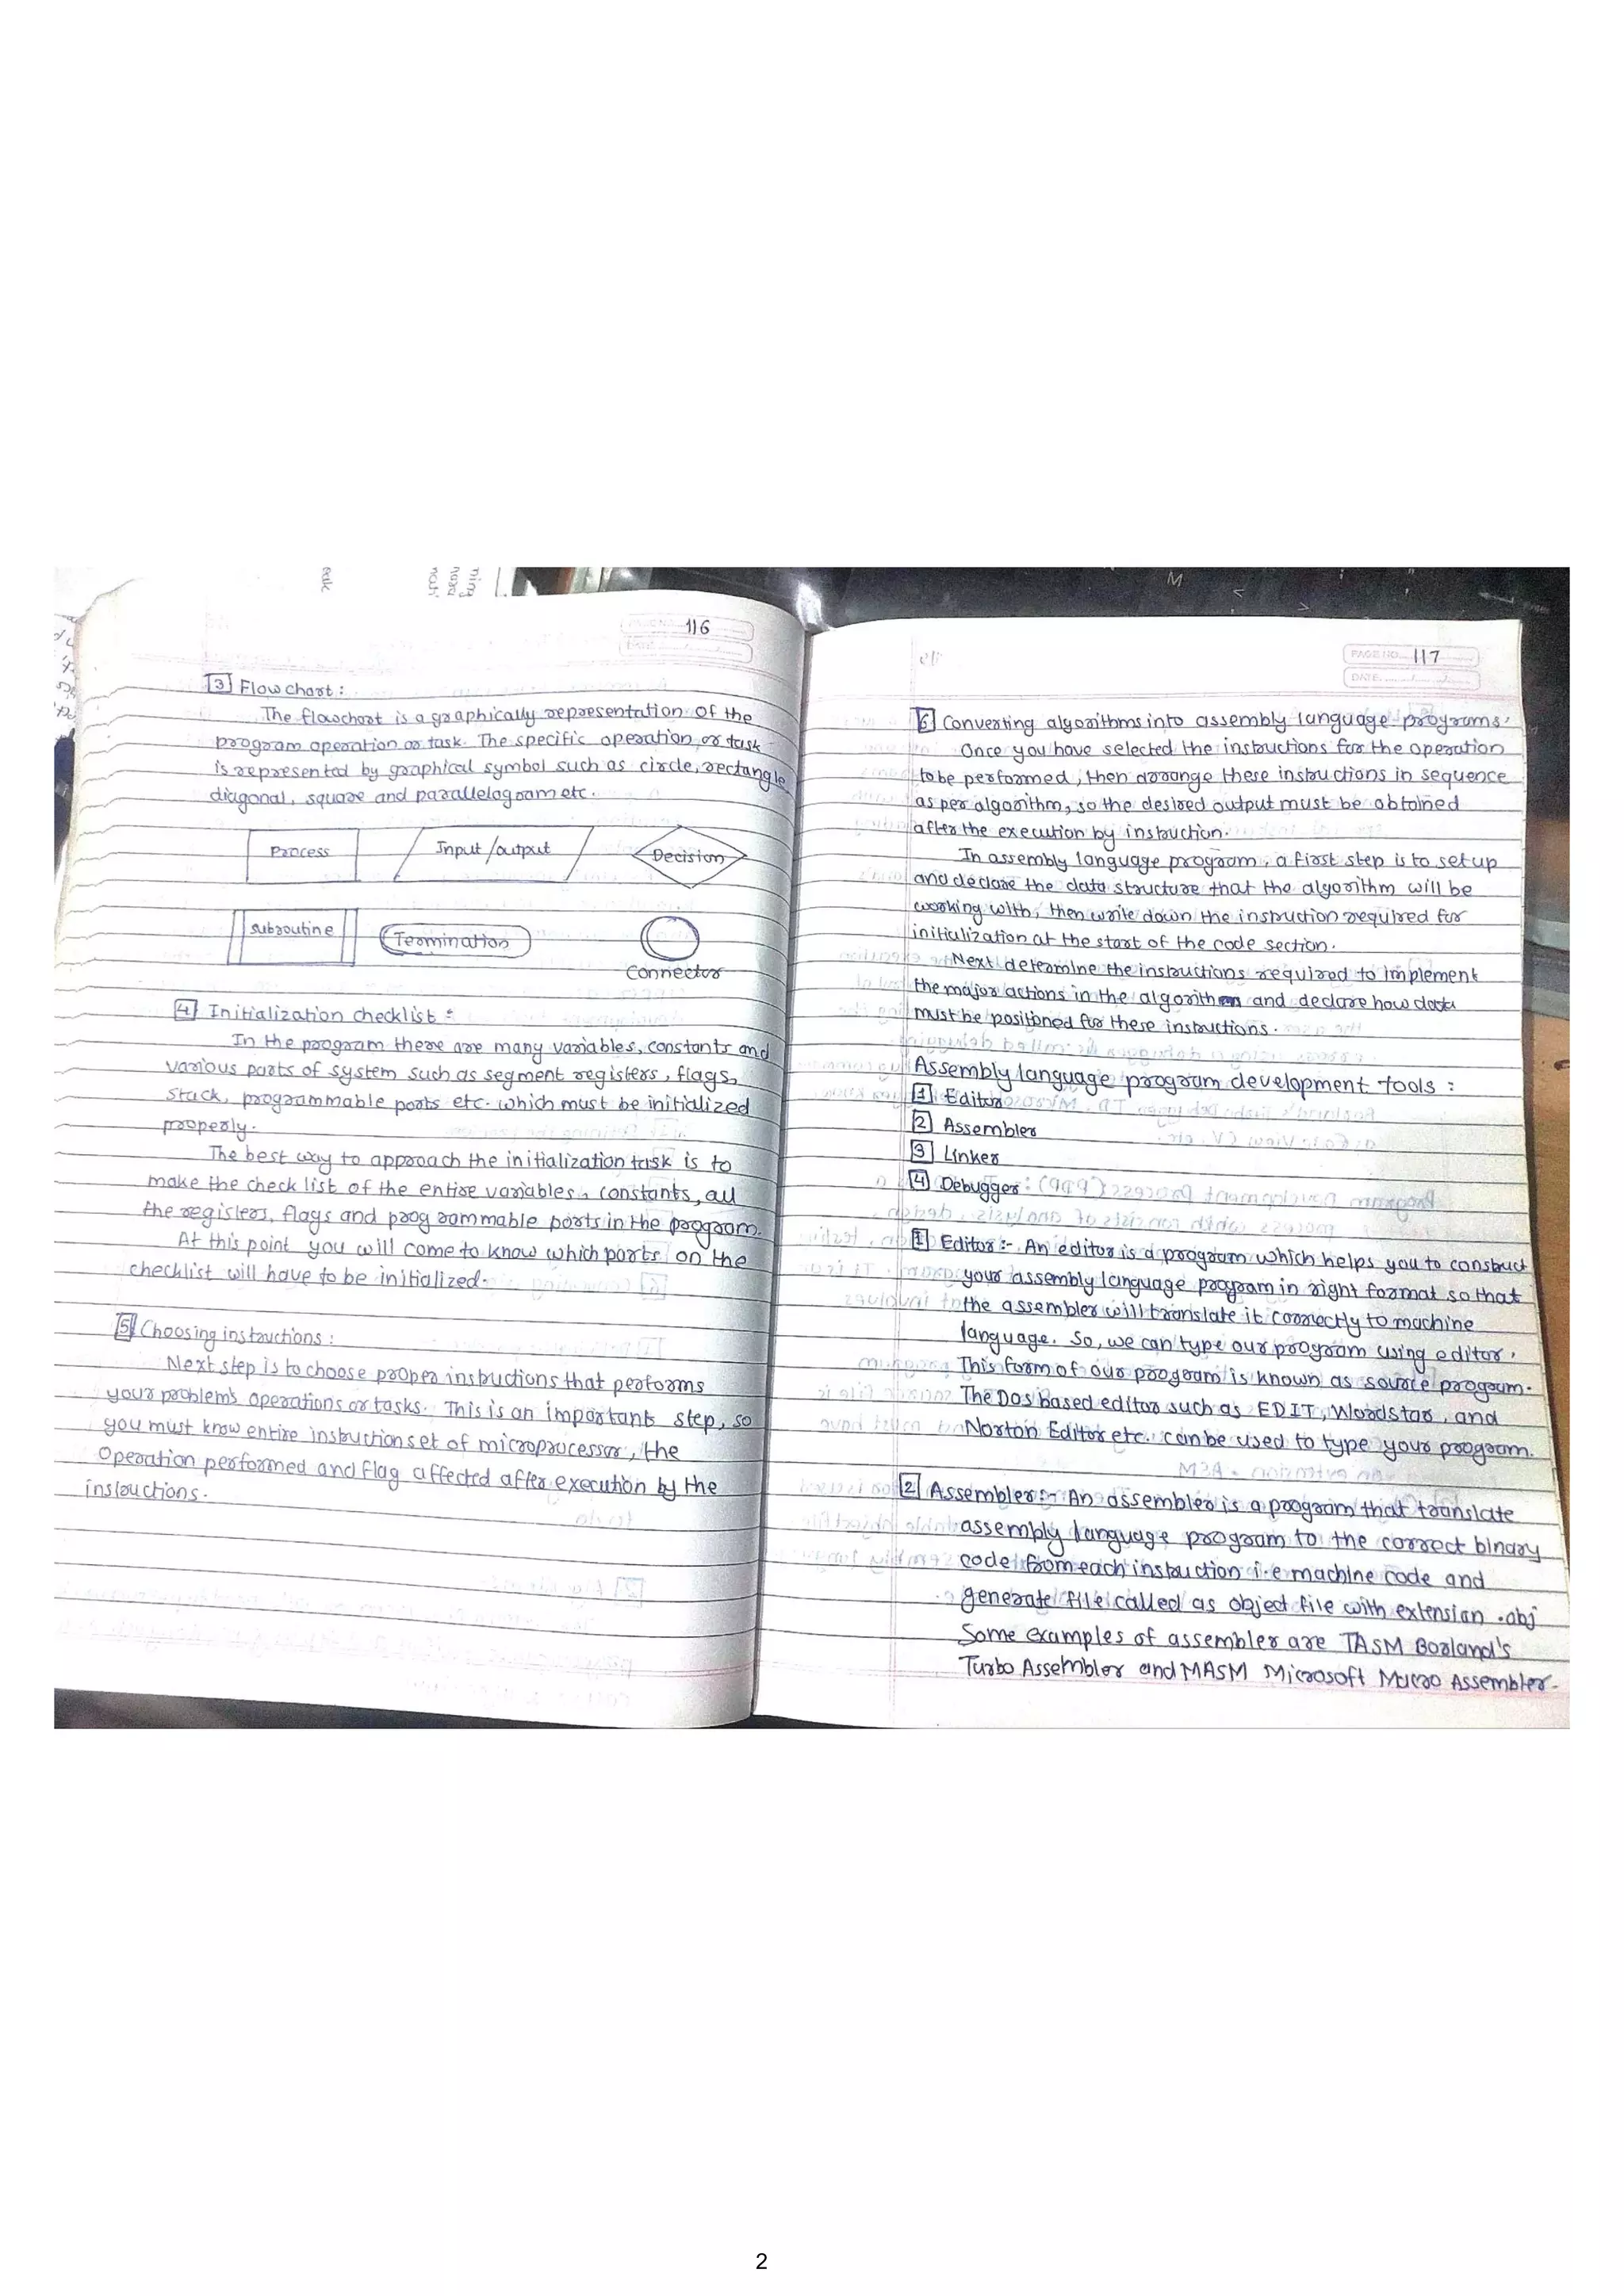 116
3 Flow chart :
The flowchart is a graphically representation of the
program operation or task. The specific operation or task
is represented by graphical symbol such as circle, rectangle
diagonal, square and parallelagram etc.
Process
Input /output
Decision
subroutine
Termination
Connector
4 Initialization checklist :
In the program there are many variables, constants and
various parts of system such as segment registers, flags,
stack, programmable ports etc. which must be initialized
properly.
The best way to approach the initialization task is to
make the check list of the entire variables, constants, all
the registers, flags and programmable ports in the program.
At this point you will come to know which parts on the
checklist will have to be initialized.
5 Choosing instructions :
Next step is to choose proper instructions that performs
your problem's operations or tasks. This is an important step, so
you must know entire instruction set of microprocessor, the
operation performed and flag affected after execution by the
instructions.
PAGE NO. 117
DATE
6 Converting algorithms into assembly language programs.
Once you have selected the instructions for the operation
to be performed, then arrange these instructions in sequence
as per algorithm, so the desired output must be obtained
after the execution by instruction.
In assembly language program a first step is to setup
and declare the data structure that the algorithm will be
working with, then write down the instruction required for
initialization at the start of the code section.
Next determine the instructions required to implement
the major actions in the algorithm and declare how data
must be positioned for these instructions.
Assembly language program development tools :
1 Editor
2 Assembler
3 Linker
4 Debugger
1 Editor :- An editor is a program which helps you to construct
your assembly language program in right format so that
the assembler will translate it correctly to machine
language. So, we can type our program using editor.
This form of our program is known as source program.
The Dos based editor such as EDIT, Wordstar, and
Norton Editor etc. can be used to type your program.
2 Assembler :- An assembler is a program that translate
assembly language program to the correct binary
code from each instruction i.e machine code and
generate file called as object file with extension .obj
Some examples of assembler are TASM Borland's
Turbo Assembler and MASM Microsoft Macro Assembler.
2